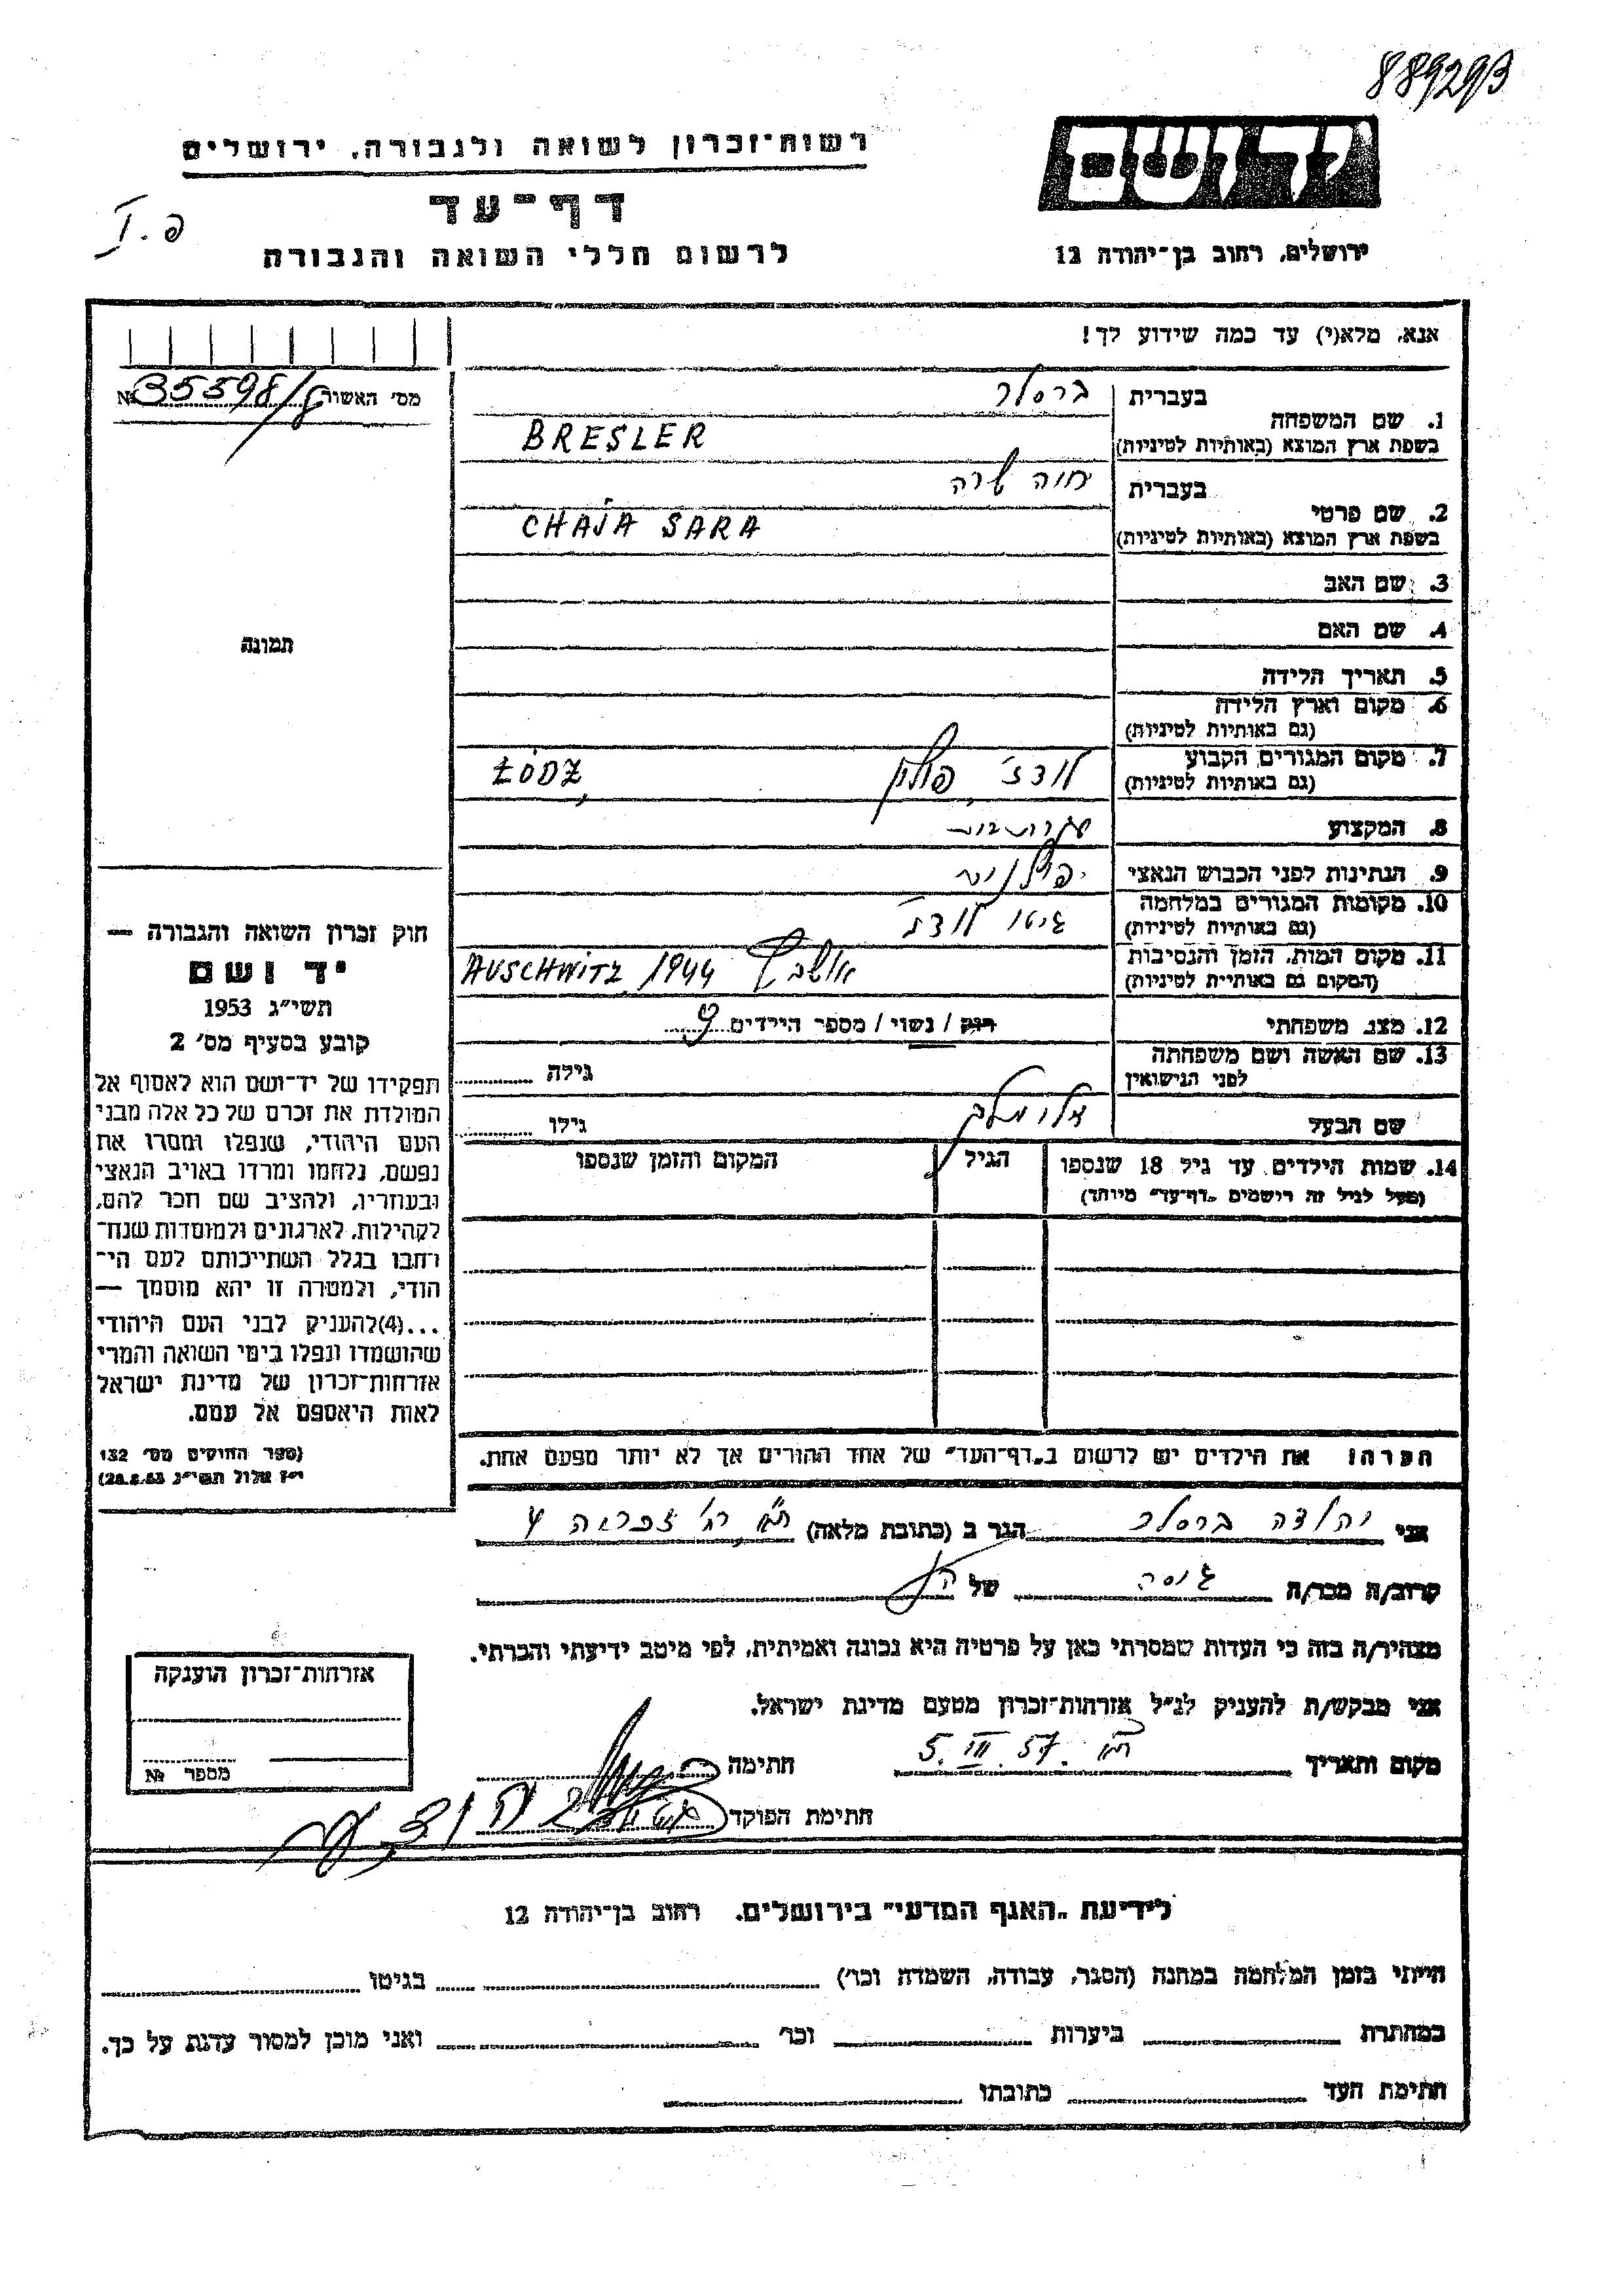 889293
רשות־זכרון לשואה ולגבורה, ירושלים
יד ושם
דף־עד
פ. I
לרשום חללי השואה והגבורה
ירושלים, רחוב בן־יהודה 12
אנא, מלא(י) עד כמה שידוע לך!
מס׳ האשור № 35598/8
בעברית ברסלר
1. שם המשפחה
בשפת ארץ המוצא (באותיות לטיניות) BRESLER
בעברית חיה שרה
2. שם פרטי
בשפת ארץ המוצא (באותיות לטיניות) CHAJA SARA
3. שם האב
4. שם האם
תמונה
5. תאריך הלידה
6. מקום וארץ הלידה
(גם באותיות לטיניות)
7. מקום המגורים הקבוע לודז׳, פולין ŁÓDZ,
(גם באותיות לטיניות)
8. המקצוע
9. הנתינות לפני הכבוש הנאצי פולנית
10. מקומות המגורים במלחמה גיטו לודז׳
(גם באותיות לטיניות)
11. מקום המות, הזמן והנסיבות AUSCHWITZ 1944
(המקום גם באותיית לטיניות)
12. מצב משפחתי רווק / נשוי / מספר הילדים 9
13. שם האשה ושם משפחתה
לפני הנישואין גילה
שם הבעל אלימלך גילו
14. שמות הילדים עד גיל 18 שנספו הגיל המקום והזמן שנספו
(מעל לגיל זה רישמים „דף־עד״ מיוחד)
חוק זכרון השואה והגבורה —
יד ושם
תשי״ג 1953
קובע בסעיף מס׳ 2
תפקידו של יד־ושם הוא לאסוף אל
המולדת את זכרם של כל אלה מבני
העם היהודי, שנפלו ומסרו את
נפשם, נלחמו ומרדו באויב הנאצי
ובעוזריו, ולהציב שם וזכר להם,
לקהילות, לארגונים ולמוסדות שנח־
רחבו בגלל השתייכותם לעם הי־
הודי, ולמטרה זו יהא מוסמך —
...(4)להעניק לבני העם היהודי
שהושמדו ונפלו בימי השואה והמרי
אזרחות־זכרון של מדינת ישראל
לאות היאספם אל עמם.
(ספר החוקים מס׳ 132
י״ז אלול תשי״ג 28.8.53)
הערה! את הילדים יש לרשום ב„דף־העד״ של אחד ההורים אך לא יותר מפעם אחת.
אני ברסלר הגר ב (כתובת מלאה)
קרוב/ה מכר/ה גיסה של
מצהיר/ה בזה כי העדות שמסרתי כאן על פרטיה היא נכונה ואמיתית, לפי מיטב ידיעתי והכרתי.
אני מבקש/ת להעניק לנ״ל אזרחות־זכרון מטעם מדינת ישראל.
מקום ותאריך 5. III. 57. חתימה
חתימת הפוקד
אזרחות־זכרון הוענקה
מספר №
לידיעת „האגף המדעי״ בירושלים. רחוב בן־יהודה 12
הייתי בזמן המלחמה במחנה (הסגר, עבודה, השמדה וכו׳) בגיטו
במחתרת ביערות וכו׳ ואני מוכן למסור עדות על כך.
חתימת העד כתובתו